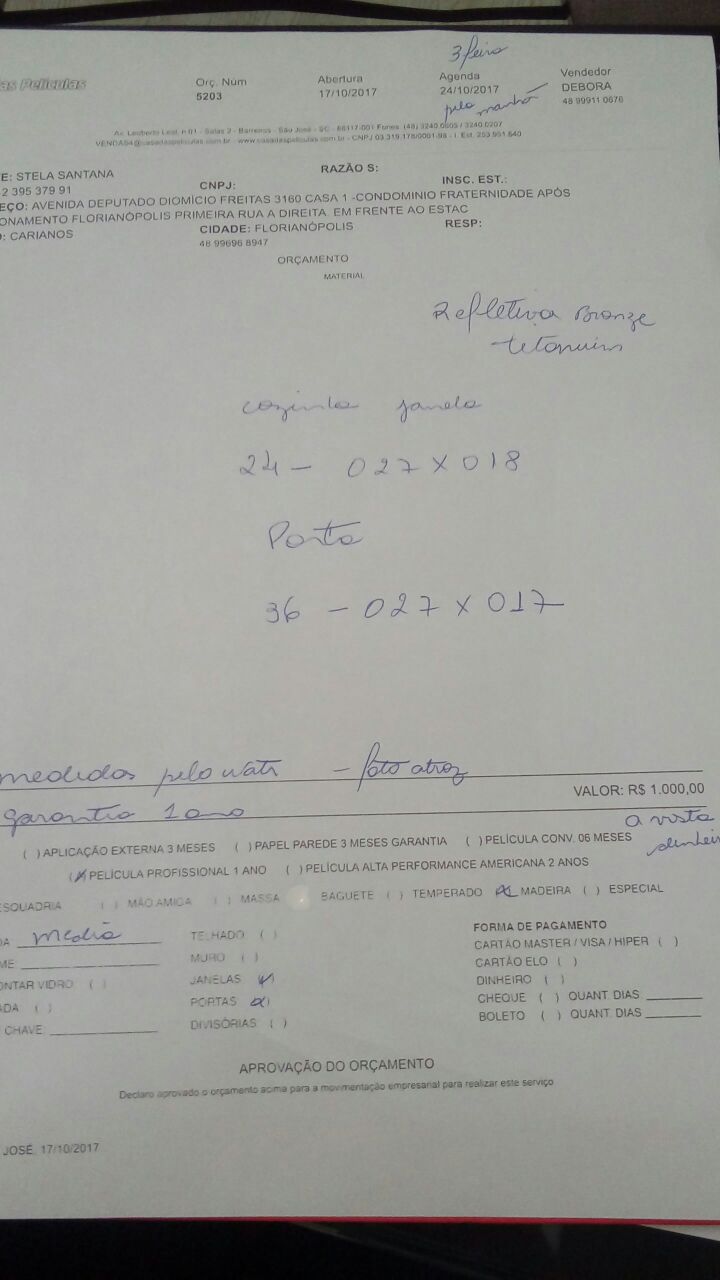 3 feira
as Películas
Orç. Núm Abertura Agenda Vendedor
5203 17/10/2017 24/10/2017 DEBORA
pela manhã 48 99911 0676
Av. Leoberto Leal, n 01 - Salas 2 - Barreiros - São José - SC - 88117-001 Fones: (48) 3240.0605 / 3240.0207
VENDAS4@casadaspeliculas.com.br - www.casadaspeliculas.com.br - CNPJ 03.319.178/0001-98 - I. Est. 253.951.640
E: STELA SANTANA RAZÃO S:
2 395 379 91 CNPJ: INSC. EST.:
EÇO: AVENIDA DEPUTADO DIOMÍCIO FREITAS 3160 CASA 1 -CONDOMINIO FRATERNIDADE APÓS
ONAMENTO FLORIANÓPOLIS PRIMEIRA RUA A DIREITA EM FRENTE AO ESTAC
O: CARIANOS CIDADE: FLORIANÓPOLIS RESP:
48 99696 8947
ORÇAMENTO
MATERIAL
Refletiva Bronze
cozinha janela
24 - 027 X 018
Porta
36 - 027 X 017
medidas pelo - foto atraz
VALOR: R$ 1.000,00
garantia 1 ano a vista
dinheiro
( ) APLICAÇÃO EXTERNA 3 MESES ( ) PAPEL PAREDE 3 MESES GARANTIA ( ) PELÍCULA CONV. 06 MESES
(X) PELÍCULA PROFISSIONAL 1 ANO ( ) PELÍCULA ALTA PERFORMANCE AMERICANA 2 ANOS
ESQUADRIA ( ) MÃO AMIGA ( ) MASSA BAGUETE ( ) TEMPERADO (X) MADEIRA ( ) ESPECIAL
DA media TELHADO ( ) FORMA DE PAGAMENTO
ME MURO ( ) CARTÃO MASTER / VISA / HIPER ( )
ONTAR VIDRO ( ) JANELAS (X) CARTÃO ELO ( )
ADA ( ) PORTAS (X) DINHEIRO ( )
CHAVE DIVISÓRIAS ( ) CHEQUE ( ) QUANT. DIAS
BOLETO ( ) QUANT. DIAS
APROVAÇÃO DO ORÇAMENTO
Declaro aprovado o orçamento acima para a movimentação empresarial para realizar este serviço
JOSÉ, 17/10/2017